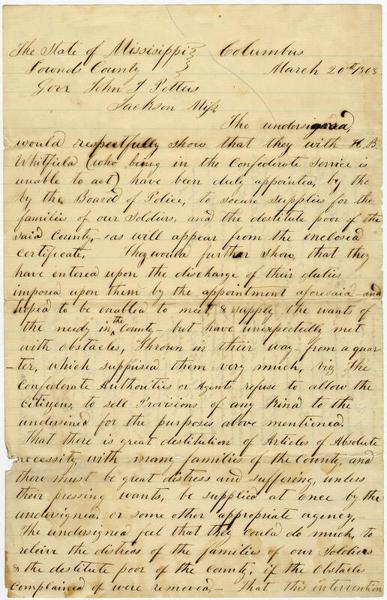 The State of Mississippi } Columbus
Lownds County } March 20th 1863
Govr John J Pettus
Jackson Miss
The undersigned,
would respectfully show that they with H. B.
Whitfield (who being in the Confederate Service is
unable to act) have been duly appointed, by the
by the Board of Police, to secure supplies for the
families of our Soldiers, and the destitute poor of the
said County, - as will appear from the inclosed
certificate. They would further show, that they
have entered upon the discharge of their duties
imposed upon them by the appointment aforesaid - and
hoped to be enabled to meet & supply the wants of
the needy in the County - but have unexpectedly met
with obstacles, thrown in their way from a quar-
ter, which suppised them very much, Viz The
Confederate Authorities or Agents refuse to allow the
citizens, to sell Provisions of any kind to the
undersined for the purposes above mentioned.
That there is great destitution of Articles of Absolute
necessity with many families of the County, and
there must be great distress and suffering, unless
their pressing wants, be supplied at once by the
undersigned, or some other appropriate agency,
The undersigned feel that they could do much, to
releive the distress of the families of our Soldiers
& the destitute poor of the County, if the Obstacles
complained of were removed - That this intervention